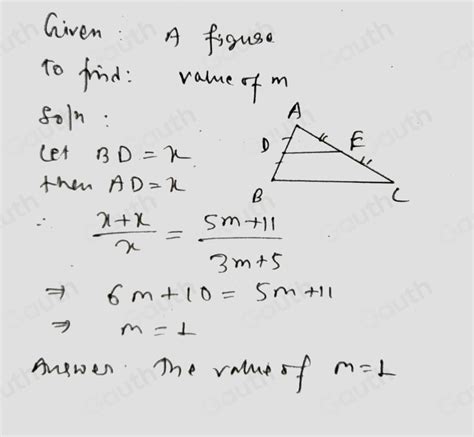 Given : A figure
To find: value of m
Soln :
Let BD = x
then AD = x
A
D
E
B
C
∴ x+x/x = 5m+11/3m+5
⇒ 6m+10 = 5m+11
⇒ m = 1
Answer. The value of m=1